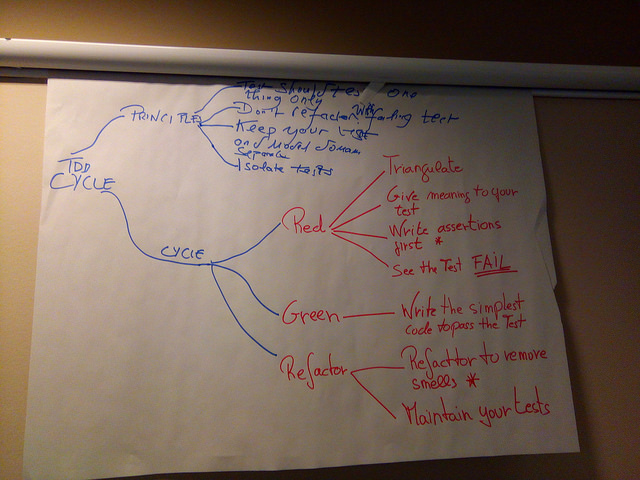 TDD
CYCLE
PRINCIPLES
Test should test one
thing only
Don't refactor with failing test
Keep your test
and Model domain
Separate
Isolate tests
CYCLE
Red
Triangulate
Give meaning to your
test
Write assertions
first *
See the Test FAIL
Green
Write the simplest
code to pass the Test
Refactor
Refacttor to remove
smells *
Maintain your tests